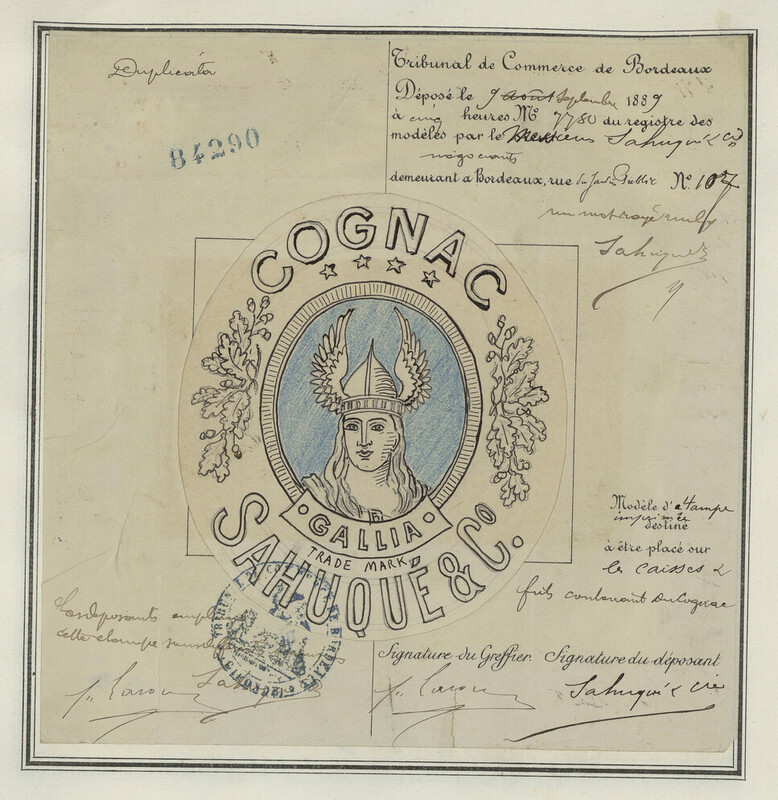 Duplicata
84290
Tribunal de Commerce de Bordeaux
Déposé le 9 août Septembre 1889
à cinq heures M^e 7780 du registre des
modèles par le Messieurs Sahuqué & Cie
négociants
demeurant à Bordeaux, rue du Jardin Public N.° 107
un mot rayé nul
Sahuqué
COGNAC
GALLIA
TRADE MARK
SAHUQUÉ & C.º
Modèle d'étampe
imprimée
destiné
à être placé sur
les caisses &
fûts contenant du Cognac
Les déposants
cette étampe
TRIBUNAL DE COMMERCE BORDEAUX
Signature du Greffier. Signature du déposant
Sahuqué & Cie